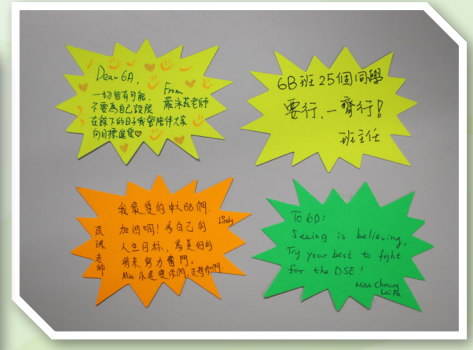 Dear 6A,
一切皆有可能，
不要為自己設限
在餘下的日子我會陪伴大家
向目標進發
From
老師
6B班25個同學
要行，一齊行！
班主任
我最愛的
加油啊！為自己的
人生目標，為美好的
將來努力奮鬥。
Miss 永遠愛你們，支持你們
老師
To 6D:
Seeing is believing.
Try your best to fight
for the DSE!
Miss Cheung